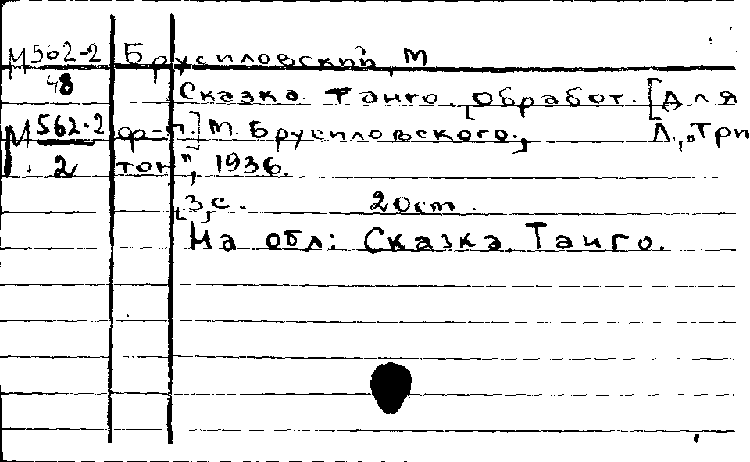 М562-2 Брусиловский, М
48 Сказка. Танго. Обработ. [Для
М562-2 ф-п.] М. Брусиловского. Л., „Три
2 тон", 1936.
3 с. 20 см.
На обл: Сказка. Танго.